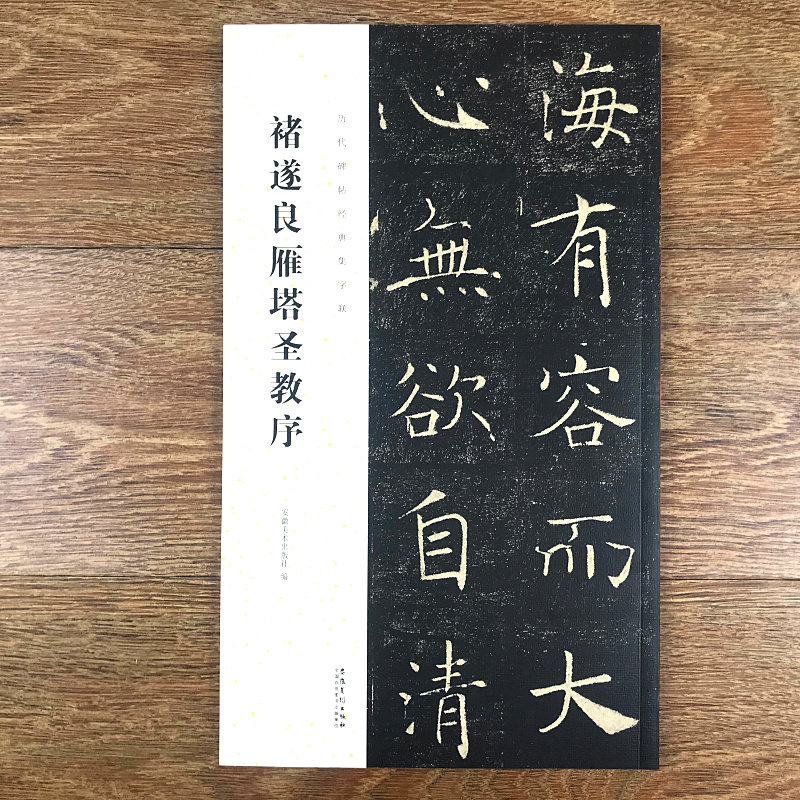 海有容而大
心無欲自清
历代碑帖经典集字联
褚遂良雁塔圣教序
安徽美术出版社 编
安徽美术出版社
全国百佳图书出版单位